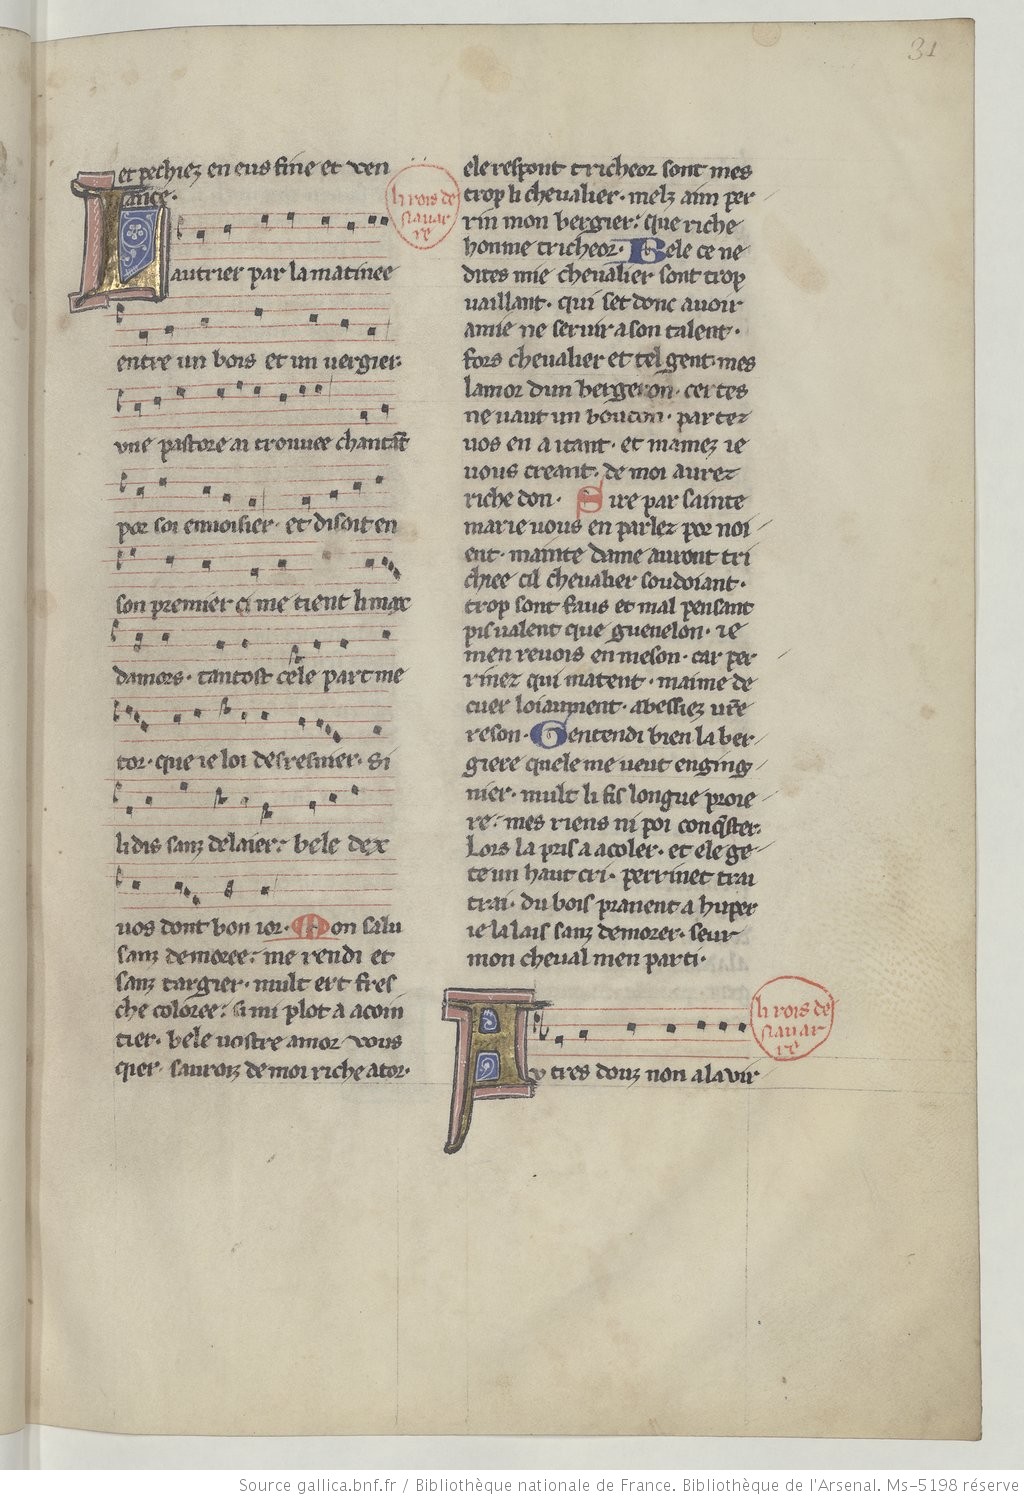 31
et pechiez en eus fine et ven
iance.
li rois de
nauar
re
Lautrier par la matinee
entre un bois et un vergier.
vne pastore ai trouuee chantāt
por soi enuoisier. et disoit en
son premier ci me tient li max
damors. tantost cele part me
tor. que ie loi desresnier. si
li dis sanz delaier: bele dex
uos dont bon ior. Mon salu
sanz demoree: me rendi et
sanz targier. mult ert fres
che coloree: si mi plot a acoin
tier. bele uostre amor vous
qier. sauroiz de moi riche ator.
ele respont tricheor sont mes
trop li chevalier. melz aim per
rin mon bergier: que riche
honme tricheor. Bele ce ne
dites mie chevalier sont trop
uaillant. qui set donc auoir
amie ne seruir a son talent.
fors chevalier et tel gent. mes
lamor dun bergeron. certes
ne uaut un bouton. partez
uos en a itant. et mamez ie
uous creant. de moi aurez
riche don. Sire par sainte
marie uous en parlez por noi
ent. mainte dame auront tri
chiee cil chevalier soudoiant.
trop sont faus et mal pensant
pis ualent que guenelon. ie
men reuois en meson. car per
rinez qui matent. maime de
cuer loiaument. abessiez ur̄e
reson. Gentendi bien la ber
giere quele me ueut enging
nier. mult li fis longue proie
re: mes riens ni poi conq̄ster.
Lors la pris a acoler. et ele ge
te un haut cri. perrinet trai
trai. du bois prauent a huper
ie la lais sanz demorer. seur
mon cheval men parti.
li rois de
nauar
re
Ay tres douz non a la vir
Source gallica.bnf.fr / Bibliothèque nationale de France. Bibliothèque de l'Arsenal. Ms-5198 réserve